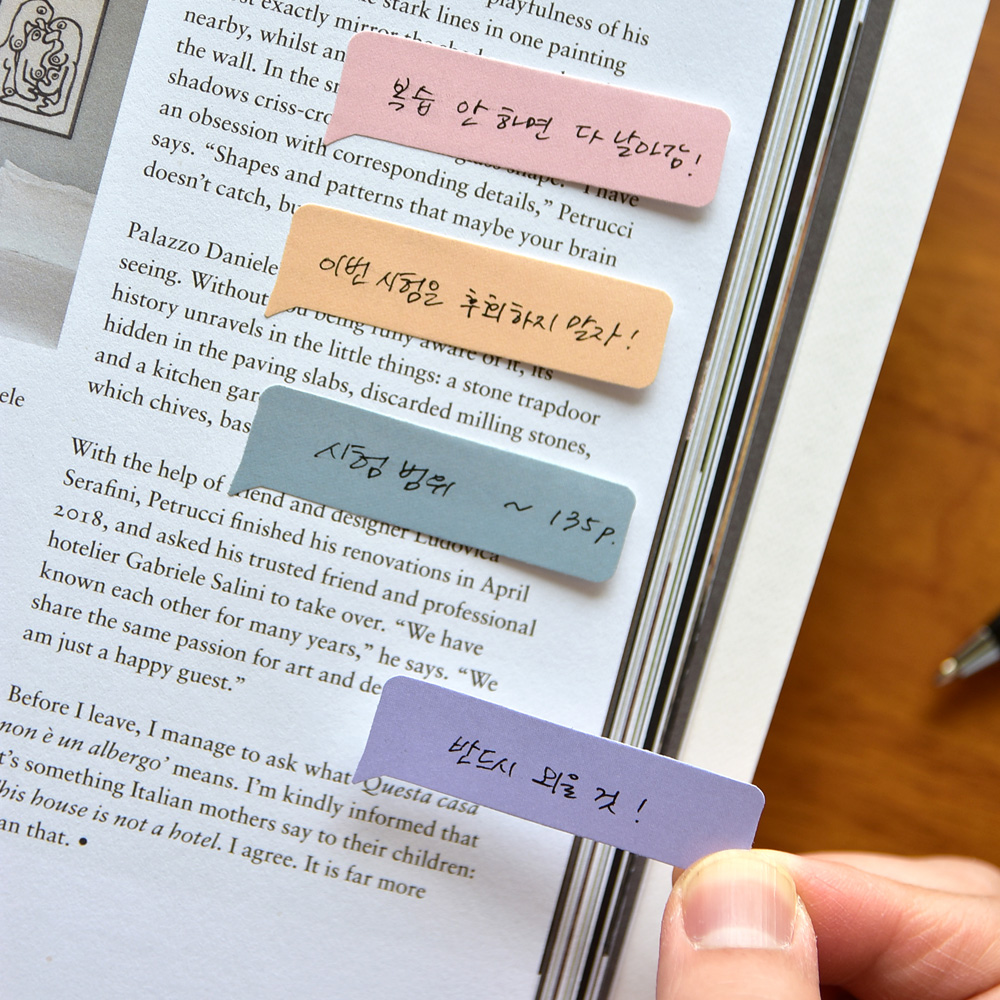 playfulness of his
stark lines in one painting
exactly mirror the
nearby, whilst
the wall. In the
shadows
an obsession with corresponding details,” Petrucci
says. “Shapes and patterns that maybe your brain
doesn’t catch,
복습 안 하면 다 날아감!
shape.” “I have
Palazzo Daniele
seeing. Without
being fully aware of it, its
history unravels in the little things: a stone trapdoor
hidden in the paving slabs, discarded milling stones,
and a kitchen
which chives,
이번 시험은 후회하지 말자!
ele
시험 범위 ~ 135p.
With the help of friend and designer Ludovica
Serafini, Petrucci finished his renovations in April
2018, and asked his trusted friend and professional
hotelier Gabriele Salini to take over. “We have
known each other for many years,” he says. “We
share the same passion for art and
am just a happy guest.”
반드시 외울 것!
Before I leave, I manage to ask what ‘Questa casa
non è un albergo’ means. I’m kindly informed that
it’s something Italian mothers say to their children:
this house is not a hotel. I agree. It is far more
than that. •